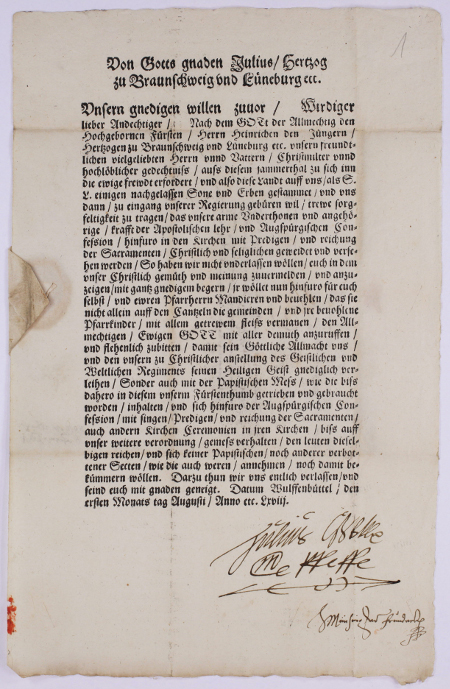 1
Von Gotts gnaden Julius/ Hertzog
zu Braunschweig vnd Lüneburg etc.
Vnsern gnedigen willen zuuor/ Wirdiger
lieber Andechtiger/ Nach dem GOTt der Allmechtig den
Hochgebornen Fürsten/ Herrn Heinrichen den Jüngern/
Hertzogen zu Braunschweig vnd Lüneburg etc. vnsern freundt-
lichen vielgeliebten Herrn vnnd Vattern/ Christmilter vnnd
hochlöblicher gedechtnuß/ auß diesem jammerthal zu sich inn
die ewige frewdt erfordert/ vnd also diese Landt auff vns/ als S.
L. einigen nachgelassen Sone vnd Erben gestammet/ vnd vns
dann/ zu eingang vnserer Regierung gebüren wil/ trewe sorg-
feltigkeit zu tragen/ das vnsere arme Vnderthonen vnd angehö-
rige/ krafft der Apostolischen lehr/ vnd Augspürgischen Con-
fession/ hinfuro in den Kirchen mit Predigen/ vnd reichung
der Sacramenten/ Christlich vnd seliglichen geweidet vnd verse-
hen werden/ So haben wir nicht vnderlassen wöllen/ euch in dem
vnser Christlich gemüth vnd meinung zuuermelden/ vnd anzu-
zeigen/ mit gantz gnedigem begern/ jr wöllet nun hinfuro für euch
selbst/ vnd ewren Pfarrherrn Mandieren vnd beuehlen/ das sie
nicht allein auff den Cantzeln die gemeinden/ vnd jre beuohlne
Pfarrkinder/ mit allem getrewem fleiß vermanen/ den All-
mechtigen/ Ewigen GOTt mit aller demuth anzuruffen/
vnd flehenlich zubitten/ damit sein Göttliche Allmacht vns/
vnd den vnsern zu Christlicher anstellung des Geistlichen vnd
Weltlichen Regiments seinen Heiligen Geist gnediglich ver-
leihen/ Sonder auch mit der Papistischen Meß/ wie die biß
dahero in diesem vnserm Fürstenthumb getrieben vnd gebraucht
worden/ inhalten/ vnd sich hinfuro der Augspürgischen Con-
fession/ mit singen/ Predigen/ vnd reichung der Sacramenten/
auch andern Kirchen Ceremonien in jren Kirchen/ biß auff
vnser weitere verordnung/ gemeß verhalten/ den leuten diesel-
bigen reichen/ vnd sich keiner Papistischen/ noch anderer verbot-
tener Secten/ wie die auch weren/ annehmen/ noch damit be-
kümmern wöllen. Darzu thun wir vns entlich verlassen/ vnd
seind euch mit gnaden geneigt. Datum Wulffenbüttel/ den
ersten Monats tag Augusti/ Anno etc. Lxviij.
Julius